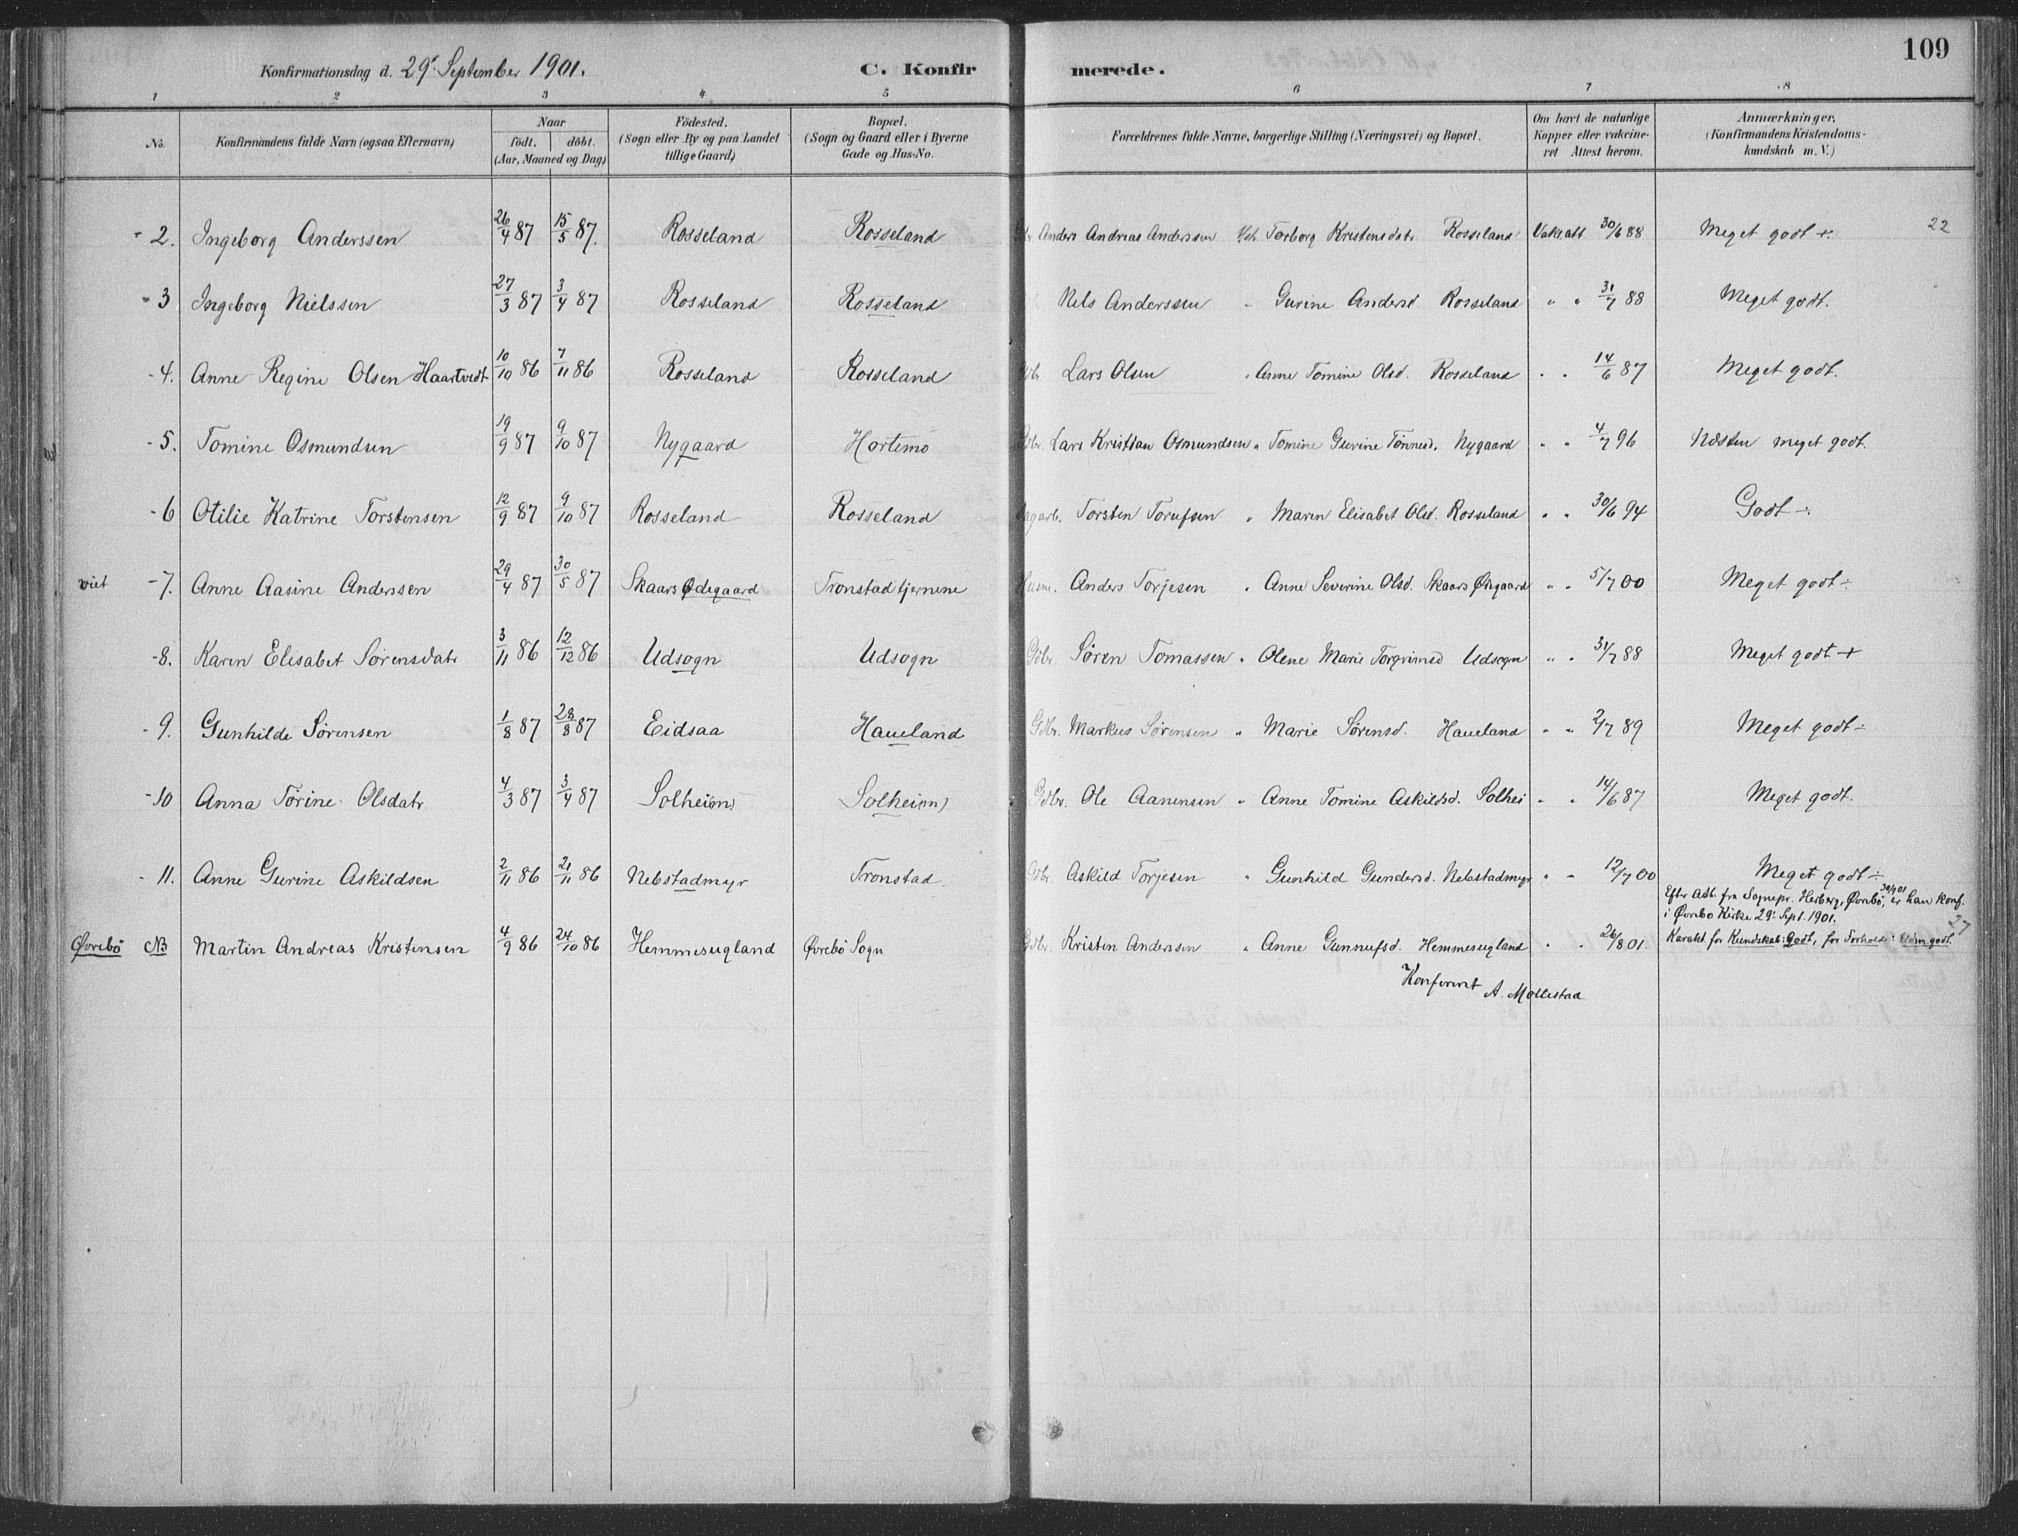 109
Konfirmationsdag d. 29de September 1901. C. Konfirmerede.
1 2 3 4 5 6 7 8
No. Konfirmandens fulde Navn (ogsaa Efternavn) Naar födt. döbt. (Aar, Maaned og Dag) Födested. (Sogn eller By og paa Landet tillige Gaard) Bopæl. (Sogn og Gaard eller i Byerne Gade og Hus-No. Forældrenes fulde Navne, borgerlige Stilling (Næringsvei) og Bopæl. Om havt de naturlige Kopper eller vakcineret Attest herom. Anmærkninger. (Konfirmandens Kristendomskundskab m. V.)
- 2. Ingeborg Anderssen 26/4 87 15/5 87. Rosseland Rosseland Anders Andreas Anderssen Torborg Kristensdatr Rosseland Vakcatt 30/6 88 Meget godt +. 22
- 3 Ingeborg Nielssen 27/3 87 3/4 87 Rosseland Rosseland Nels Anderssen " Gurine Andersd. Rosseland " " 31/7 88 Meget godt.
- 4. Anne Regine Olsen Haartvedt 10/10 86 7/11 86 Rosseland Rosseland Gdbr Lars Olsen " Anne Tomine Olsd. Rosseland " " 14/6 87 Meget godt.
- 5. Tomine Osmundsen 19/9 87 9/10 87 Nygaard Hortemo Gdbr. Lars Kristian Osmundsen " Tomine Gurine Tønnesd. Nygaard " " 4/7 96 Næsten meget godt.
- 6 Otilie Katrine Torstensen 12/9 87 9/10 87 Rosseland Rosseland Dagarb. Torsten Torufsen " Maren Elisabet Olsd. Rosseland " " 30/6 94 Godt ÷.
- 7. Anne Aasine Anderssen 29/4 87 30/5 87 Skaars Ødegaard Tronstadtjernene Husm. Anders Torjesen " Anne Severine Olsd. Skaars Ødegaard " " 5/7 00 Meget godt ÷
- 8. Karen Elisabet Sørensdatr 3/11 86 12/12 86 Udsogn Udsogn Gdbr. Søren Tomassen " Olene Marie Torgrimsd Udsogn " " 31/7 88 Meget godt +
- 9. Gunhilde Sørensen 1/8 87 28/8 87 Eidsaa Haueland Gdbr. Markus Sørensen " Marie Sørensd. Haueland " " 2/7 89 Meget godt ÷
- 10 Anna Tørine Olsdatr. 4/3 87 3/4 87 Solheim Solheim Gdbr. Ole Aanensen " Anne Tomine Askildsd. Solhei " " 14/6 87 Meget godt.
- 11. Anne Gurine Askildsen 2/11 86 21/11 86 Nebstadmyr Tronstad. Gdbr. Askild Torjesen " Gunhild Gundersd. Nebstadmyr " " 12/7 00 Meget godt ÷
Efter Att. fra Sognepr. Herberg, Øvrebø, 30/9 01 er han konf. i Øvrebø Kirke 29de Sept. 1901.
Øvrebø NB Martin Andreas Kristensen 4/9 86 24/10 86 Hemmesugland Øvrebø Sogn Gdbr. Kristen Andersen " Anne Gunnufsd. Hemmesugland " " 26/8 01 Karakt for Kundskab: Godt, for Forhold: godt. 27
Konfereret A. Mollestad